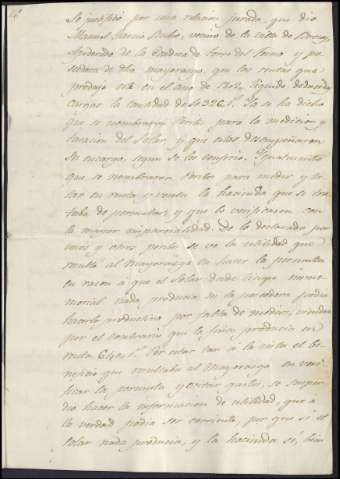 Se justificó por una relacion jurada, que dio
Manuel Garcia Rubio, vecino de la villa de
de la de Torre del y po-
sehedora de dho mayorazgo, que las rentas que
produjo este en el año de liquido deducidas
cargas la cantidad de Ya se ha dicho
que se nombraron Perito para la medicion y
tasacion del Solar, y que ellos desempeñaron
su encargo, segun se les confirió. Igualmente
que se nombraron Peritos para medir y ta-
sar en renta y venta la hacienda que se tra-
taba de permutar, y que lo verificaron con
la mayor imparcialidad. De lo declarado por
unos y otros peritos se ve la utilidad que
resulta al Mayorazgo en hacer la permuta
en razon a que el Solar desde tiempo inme-
morial nada producia ni la poseedora podia
hacerlo productivo por falta de medios, siendo
por el contrario que la finca producia en
renta Por estar tan a la vista el be-
neficio que resultaba al Mayorazgo en veri-
ficar la permuta y evitar gastos, se suspen-
dio hacer la informacion de utilidad, que a
la verdad podia ser escusada, por que si el
solar nada producia, y la hacienda si, bien